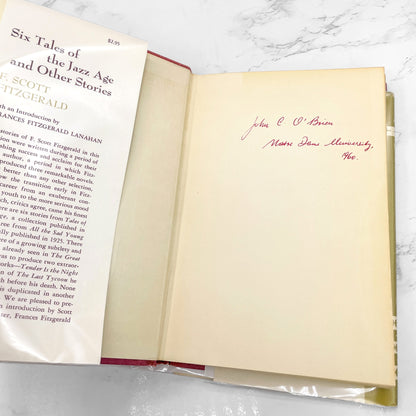 $2.95
Six Tales of
the Jazz Age
and Other Stories
F. SCOTT
FITZGERALD
with an Introduction by
FRANCES FITZGERALD LANAHAN
stories of F. Scott Fitzgerald in this
tion were written during a period of
shing success and acclaim for their
author, a period in which Fitz-
produced three remarkable novels.
better than any other selection,
ow the transition early in Fitz-
career from an exuberant con-
youth to the more serious mood
ch, critics agree, came his finest
re are six stories from Tales of
Age, a collection published in
ree from All the Sad Young
ally published in 1925. There
ere of a growing subtlety and
already seen in The Great
was to produce two extraor-
ks—Tender Is the Night
on of The Last Tycoon he
h before his death. None
is duplicated in another
We are pleased to pre-
an introduction by Scott
ter, Frances Fitzgerald
John C O'Brien
Notre Dame University,
'60.